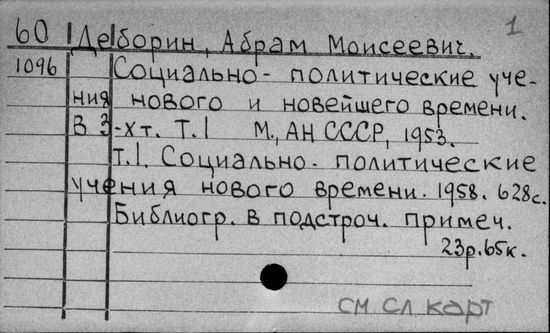 60 Деборин, Абрам Моисеевич. 1
1096 Социально-политические уче-
ния нового и новейшего времени.
В 3-х т. Т.1 М., АН СССР, 1953.
Т.1. Социально-политические
учения нового времени. 1958. 628с.
Библиогр. в подстроч. примеч.
23р.65к.
см сл карт